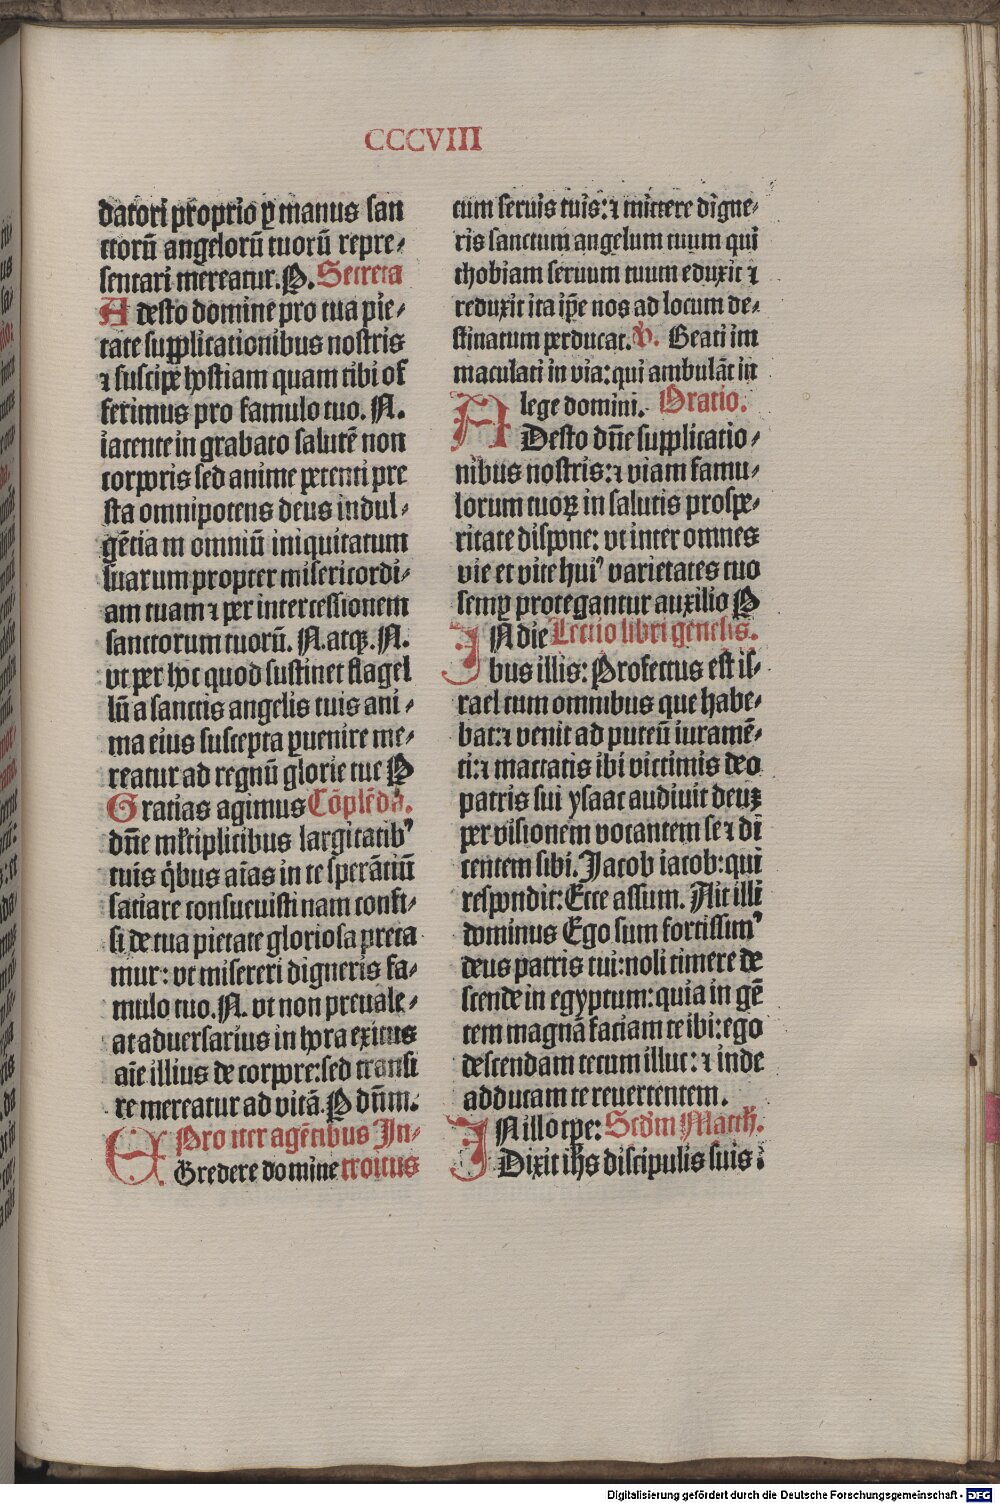 CCCVIII
datori proprio ꝑ manus san
ctorū angelorū tuorū repre⸗
sentari mereatur. P. Secreta
Adesto domine pro tua pie⸗
tate supplicationibus nostris
⁊ suscipe hostiam quam tibi of
ferimus pro famulo tuo. N.
iacente in grabato salutē non
corporis sed anime petenti pre
sta omnipotens deus indul⸗
gētia m omniū iniquitatum
suarum propter misericordi⸗
am tuam ⁊ per intercessionem
sanctorum tuorū. N. atqꝫ. N.
vt per hoc quod sustinet flagel
lū a sanctis angelis tuis ani⸗
ma eius suscepta ꝑuenire me⸗
reatur ad regnū glorie tue P
Gratias agimus Cōplēda.
dn̄e mĺtiplicibus largitatibꝰ
tuis q̄bus aīas in te sperātiū
satiare consueuisti nam confi⸗
si de tua pietate gloriosa preca
mur: vt misereri digneris fa⸗
mulo tuo. N. vt non preuale⸗
at aduersarius in hora exitus
aīe illius de corpore: sed transi
re mereatur ad vitā. P dn̄m.
Pro iter agētibus In⸗
EGredere domine troitus
cum seruis tuis: ⁊ mittere digne⸗
ris sanctum angelum tuum qui
thobiam seruum tuum eduxit ⁊
reduxit ita ip̄e nos ad locum de⸗
stinatum perducat. V. Beati im
maculati in via: qui ambulāt in
lege domini. Oratio.
ADesto dn̄e supplicatio⸗
nibus nostris: ⁊ viam famu⸗
lorum tuoꝝ in salutis prospe⸗
ritate dispone: vt inter omnes
vie et vite huiꝰ varietates tuo
semꝑ protegantur auxilio P
IN die Lectio libri genesis.
bus illis: Profectus est is⸗
rael cum omnibus que habe⸗
bat: ⁊ venit ad puteū iuramē⸗
ti: ⁊ mactatis ibi victimis deo
patris sui ysaac audiuit deuꝫ
per visionem vocantem se ⁊ di
centem sibi. Jacob iacob: qui
respondit: Ecce assum. Ait illi
dominus Ego sum fortissimꝰ
deus patris tui: noli timere de
scende in egyptum: quia in gē
tem magnā faciam te ibi: ego
descendam tecum illuc: ⁊ inde
adducam te reuertentem.
IN illo tp̄e: Scd̄m Matth.
Dixit ih̄s discipulis suis:
Digitalisierung gefördert durch die Deutsche Forschungsgemeinschaft - DFG